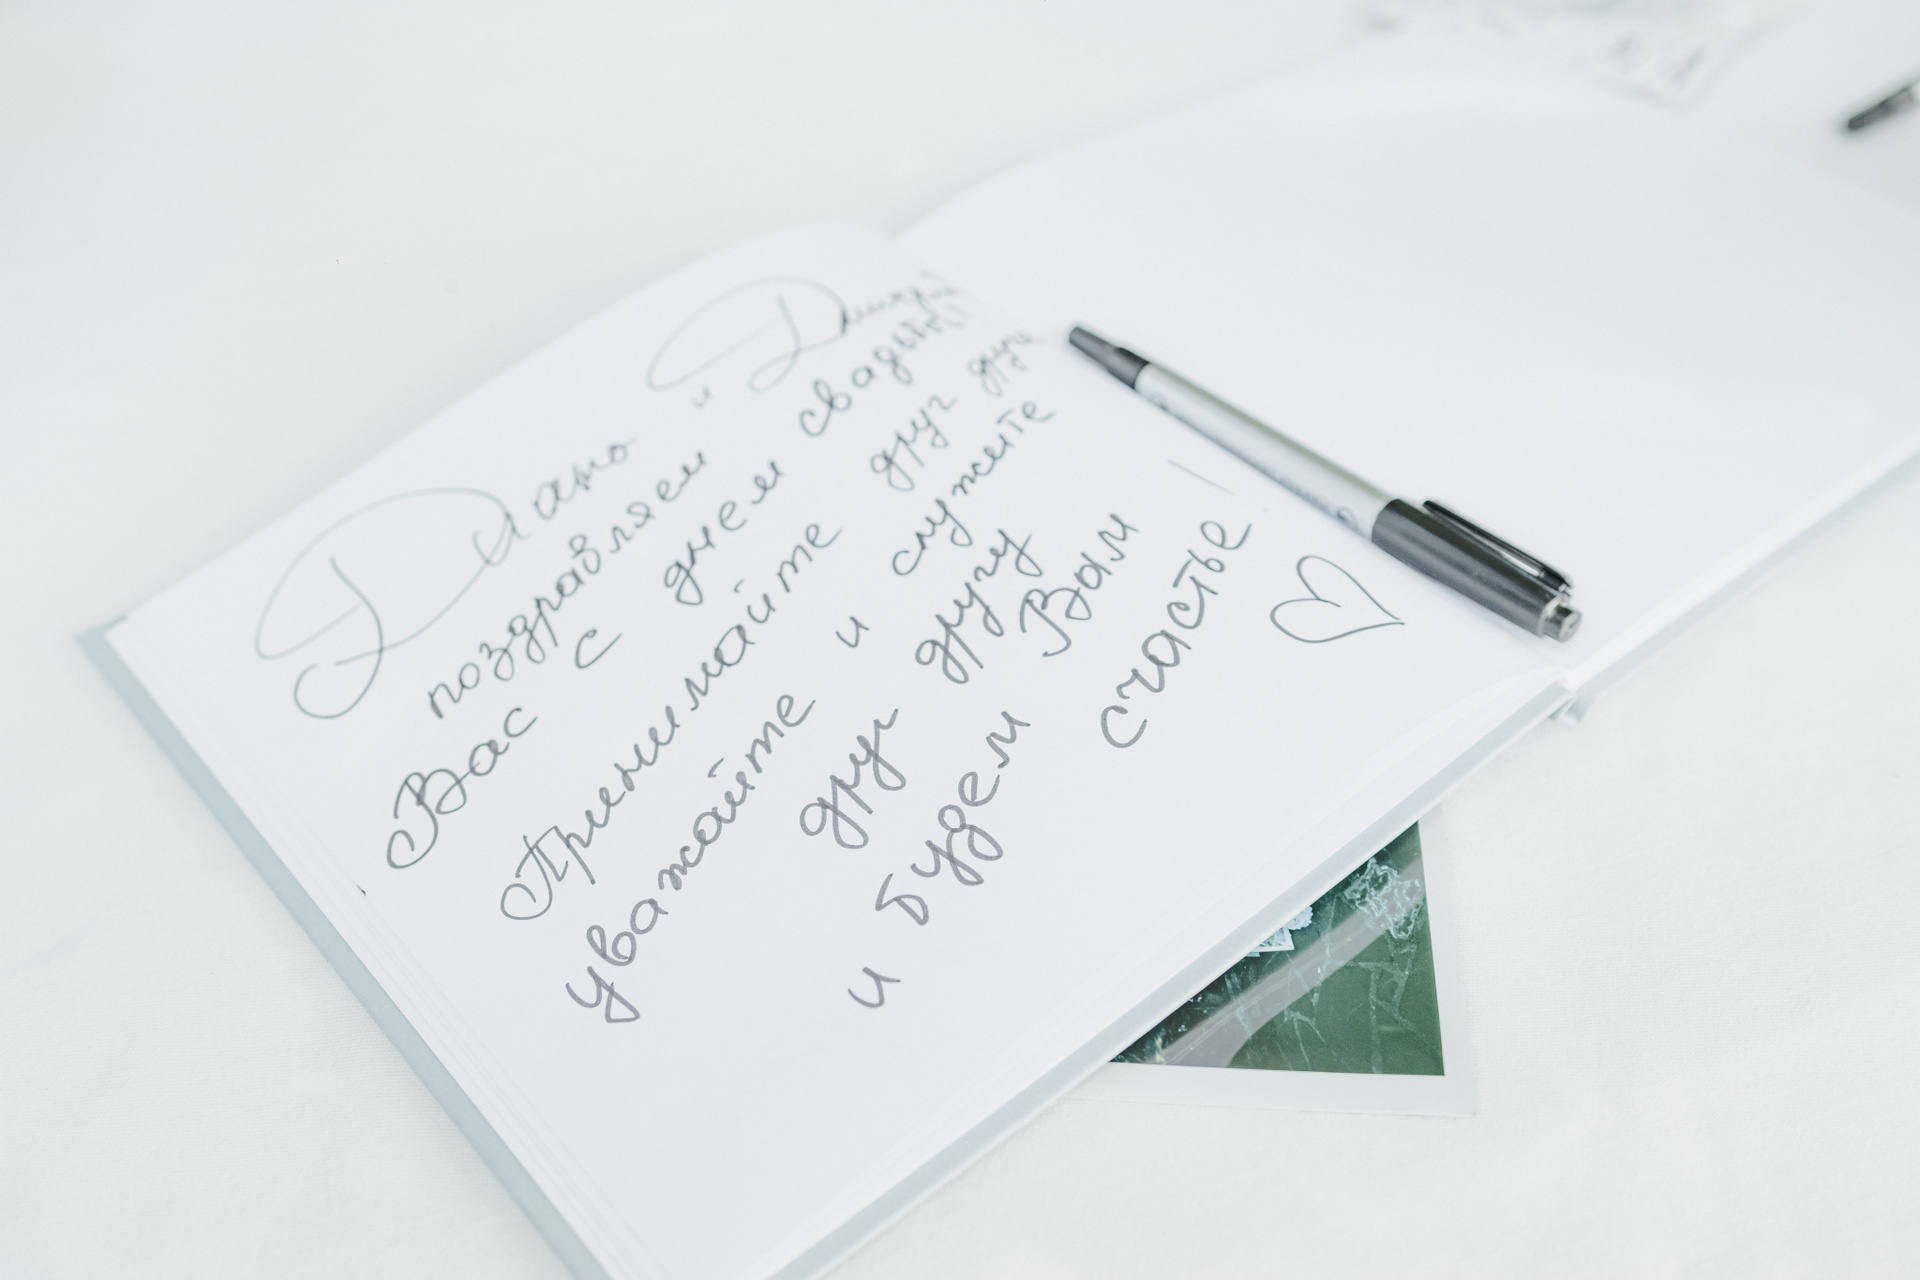 Диана и Дима!
поздравляем
Вас с днем свадьбы!
Принимайте друг друга
уважайте и служите
друг другу
и будем Вым
счастье